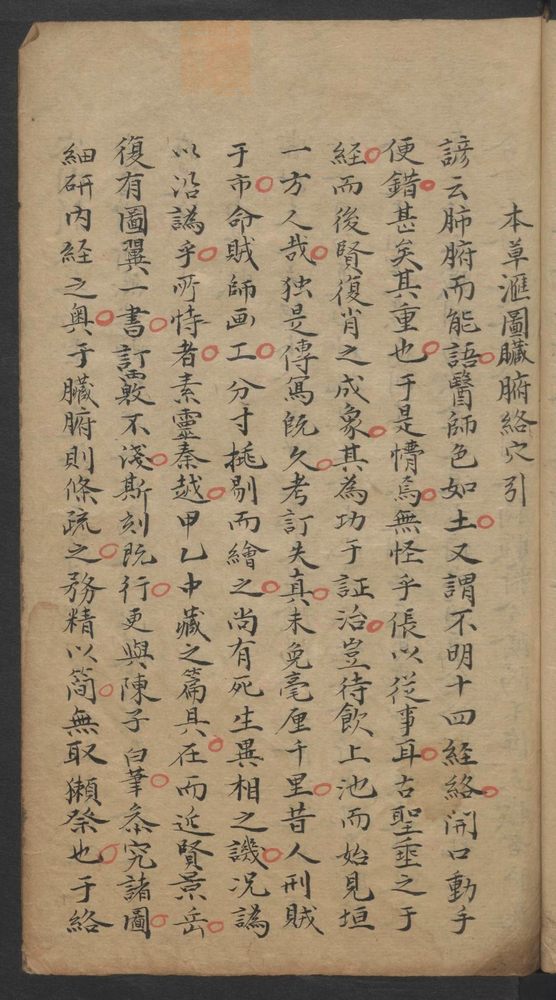 本草滙圖臟腑絡穴引
諺云肺腑而能語醫師色如土又謂不明十四經絡開口動手
便錯甚矣其重也于是懵焉無怪乎倀以從事耳古聖垂之于
經而後賢復肖之成象其為功于証治豈待飲上池而始見垣
一方人哉独是傳寫既久考訂失真未免毫厘千里昔人刑賊
于市命賊師画工分寸挑剔而繪之尚有死生異相之譏况譌
以沿譌乎所恃者素靈秦越甲乙中藏之篇具在而近賢景岳
復有圖翼一書訂覈不淺斯刻既行更與陳子白筆叅究諸圖
細研内經之奥于臟腑則條疏之務精以简無取獺祭也于絡